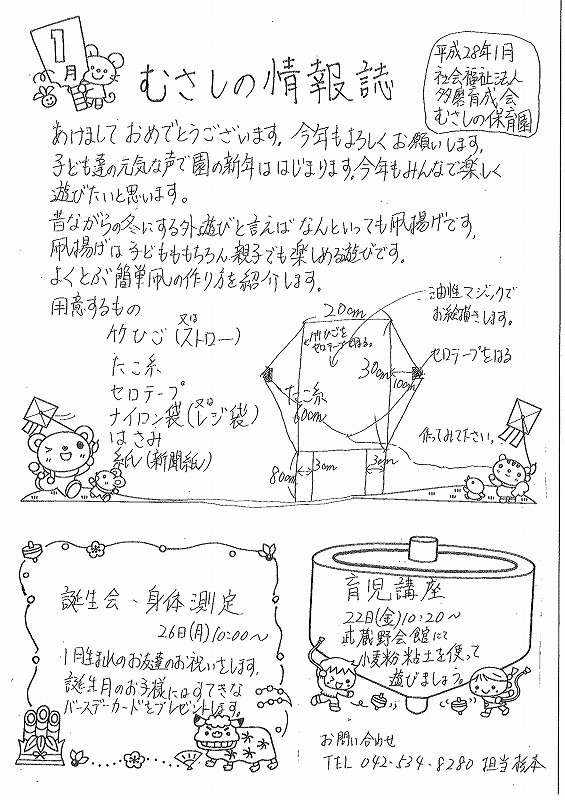 1月
むさしの情報誌
平成28年1月
社会福祉法人
多磨育成会
むさしの保育園
あけまして おめでとうございます。今年もよろしくお願いします。
子ども達の元気な声で園の新年ははじまります。今年もみんなで楽しく
遊びたいと思います。
昔ながらの冬にする外遊びと言えば なんといっても凧揚げです。
凧揚げは子どもももちろん親子でも楽しめる遊びです。
よくとぶ簡単凧の作り方を紹介します。
用意するもの
竹ひご(又はストロー)
たこ糸
セロテープ
ナイロン袋(又はレジ袋)
はさみ
紙(新聞紙)
20cm
油性マジックで
お絵描きします。
竹ひごを
セロテープではる。
30cm
10cm
セロテープをはる
たこ糸
60cm
作ってみて下さい。
80cm
3cm
3cm
誕生会、身体測定
26日(月)10:00～
1月生まれのお友達のお祝いをします。
誕生月のお子様にはすてきな
バースデーカードをプレゼントします。
育児講座
22日(金)10:20～
武蔵野会館にて
小麦粉粘土を使って
遊びましょう。
お問い合わせ
TEL 042-534-8280 担当 杉本